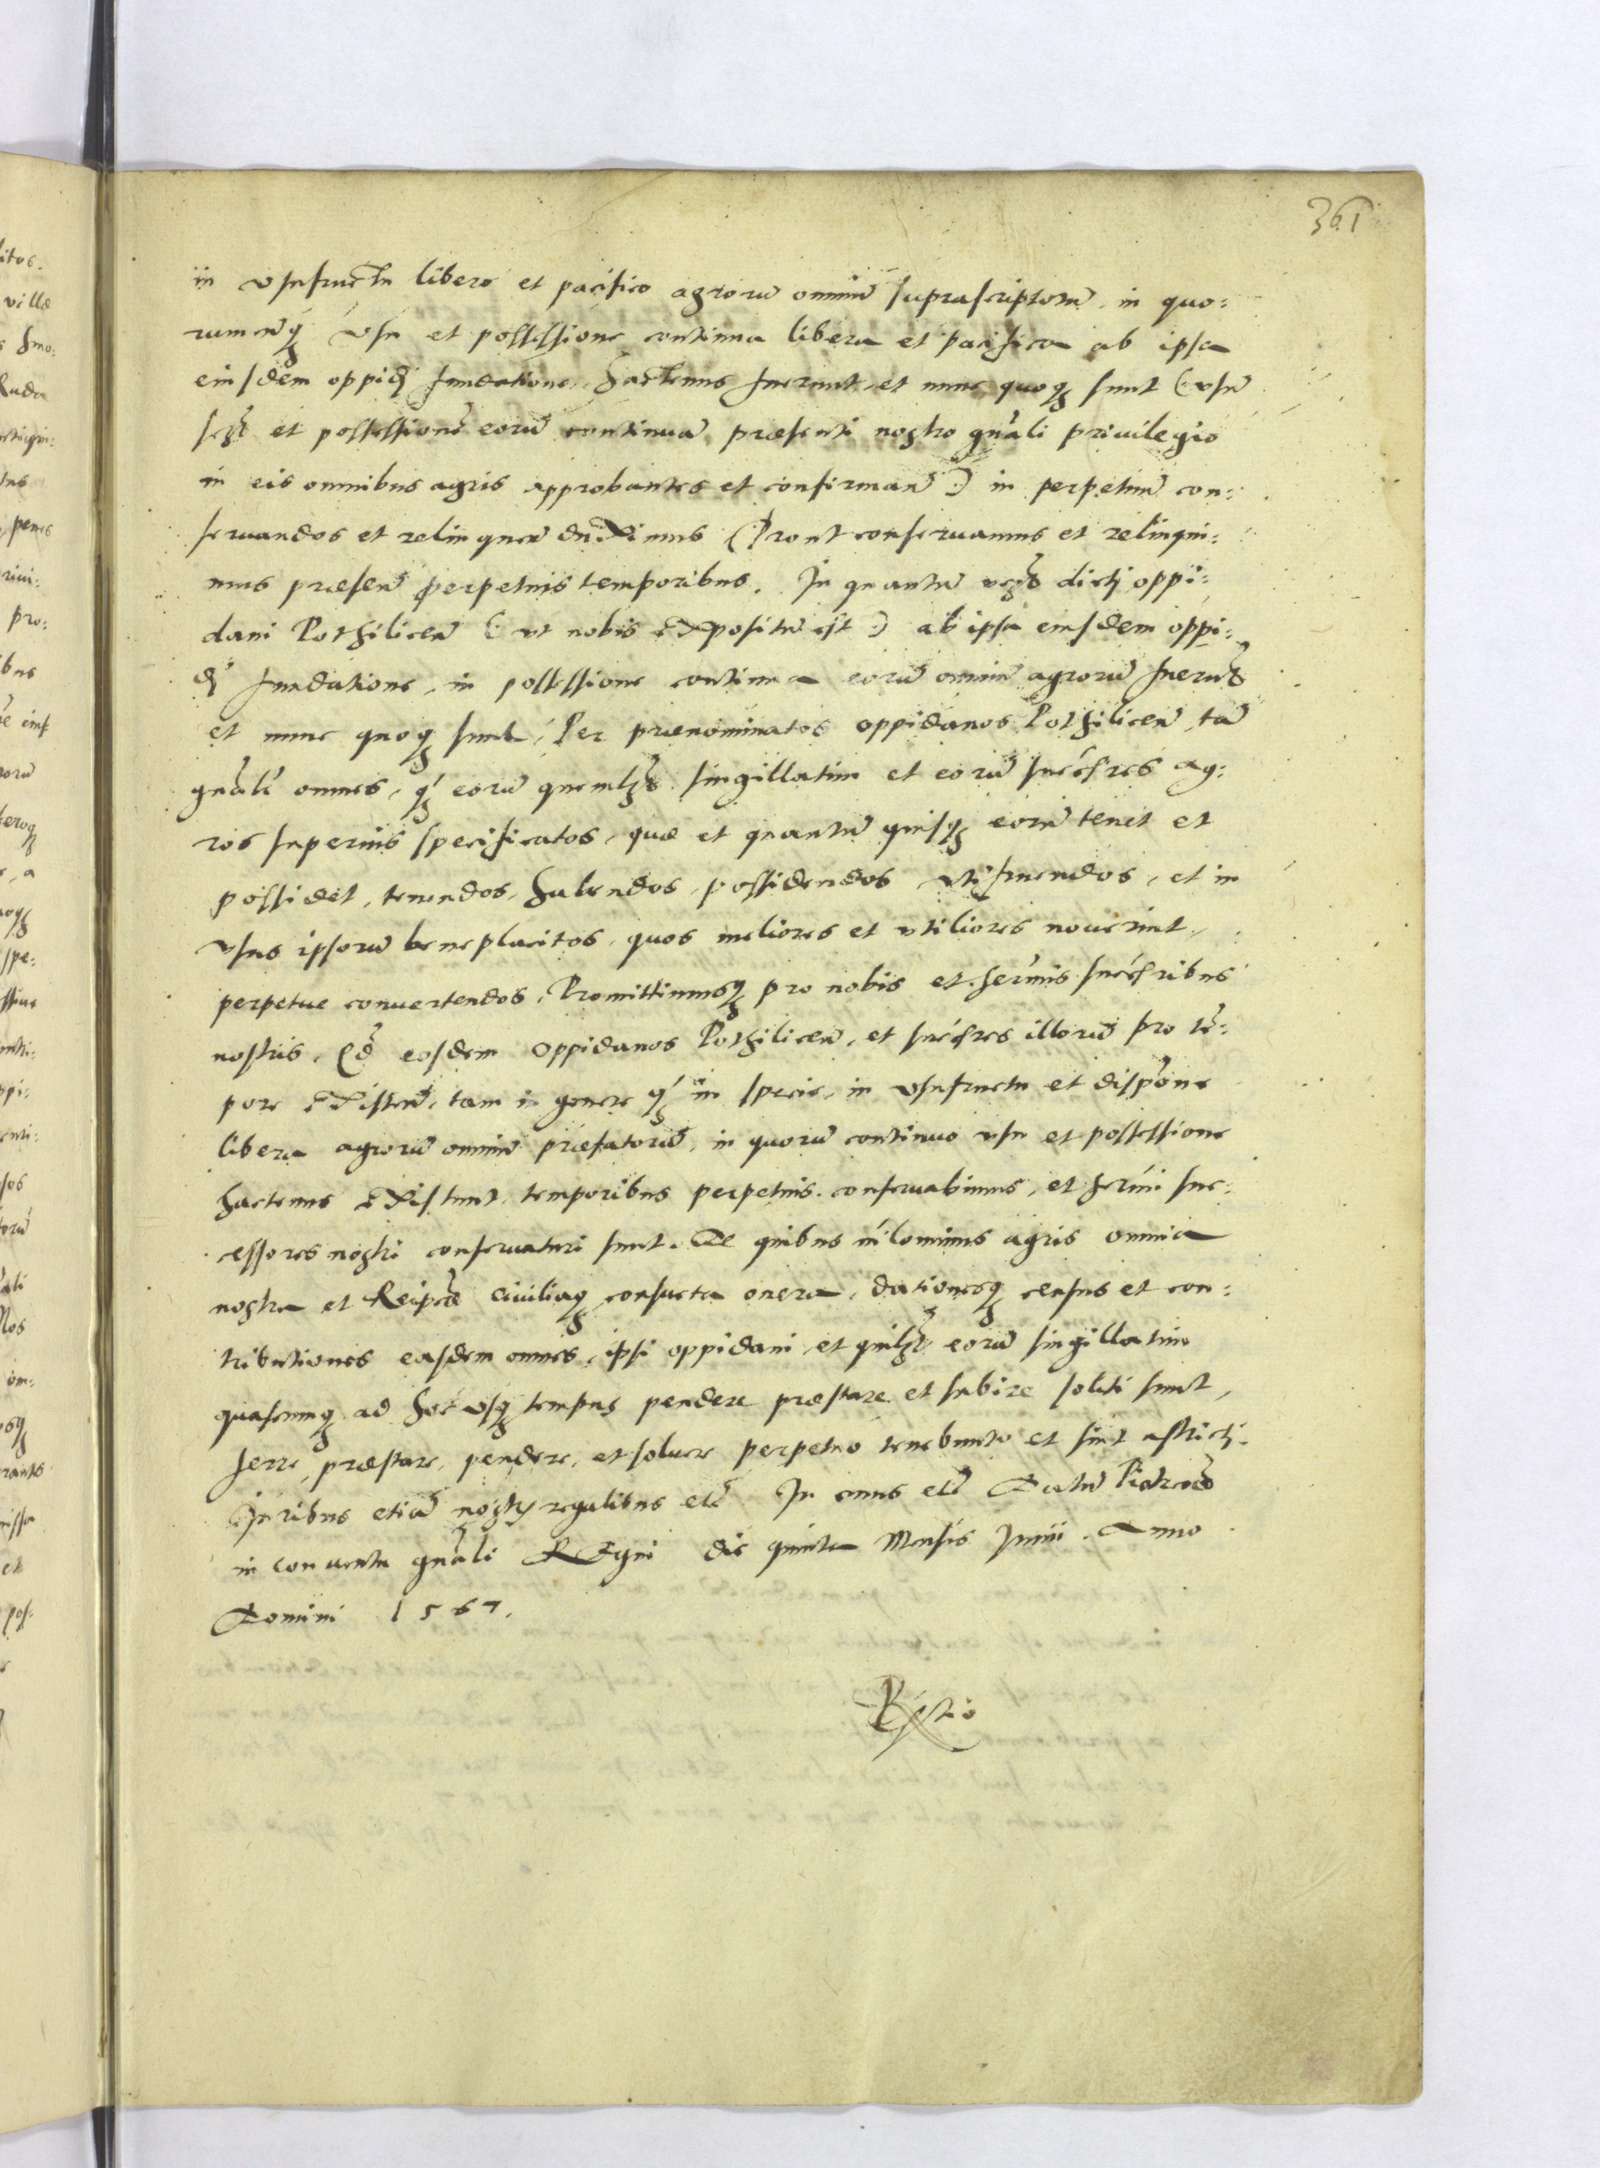 361
in vsufructu libero et pacifico agrorū omniū suprascriptorū, in quo:
rumcūq; vsu et possessione continua libera et pacifica ab ipsa
eiusdem oppidi fundatione, hactenus fuerunt, et nunc quoq; sunt (: vsū
et possessionē eorū continuā, præsenti nostro gnāli priuilegio
in eis omnibus agris approbantes et confirman̄ :) in perpetuū con:
seruandos et relinquen̄ duximus (Prout conseruamus et relinqui:
mus præsen̄ perpetuis temporibus. In quantū dicti oppi:
dani Pothilicen̄ (: vt nobis expositū est :) ab ipsa eiusdem oppi:
di fundatione, in possessione continua eorū omniū agrorū fuerūt
et nunc quoq; sunt, Per prænominatos oppidanos Pothilicen̄, tā
gnāli omnes, q̄ eorū quemlibet singillatim et eorū succēsres ag:
ros superius specificatos, quæ et quantū quisq; eorū tenet et
possidet, tenendos, habendos, possidendos vtifruendos, et in
vsus ipsorū beneplacitos, quos meliores et vtiliores nouerint,
perpetue conuertendos, Promittimusq; pro nobis et serm̄is succēsribus
nostris, eosdem oppidanos Pothilicen̄, et succēsres illorū pro tē:
pore existen̄, tam in genere q̄ in specie, in vsufructu et dispōne
libera agrorū omniū præfatorū, in quorū continuo vsu et possessione
hactenus existunt, temporibus perpetuis conseruabimus, et serm̄i suc:
cessores nostri conseruaturi sunt. De quibus nilominus agris omnia
nostra et Reipcæ ciuiliaq; consueta onera, dationesq; census et con:
tributiones easdem omnes, ipsi oppidani et quilibet eorū singillatim
quascunq; ad hoc vsq; tempus pendere præstare et subire soliti sunt,
ferre, præstare, pendere, et soluere perpetuo tenebunt et sint astricti.
Iuribus etiā nostris regalibus etc̄ In cuius etc̄ Datū Petricouiæ
in conuentu gnāli Regni die quinta Mensis Junii. Anno
Domini 1567.